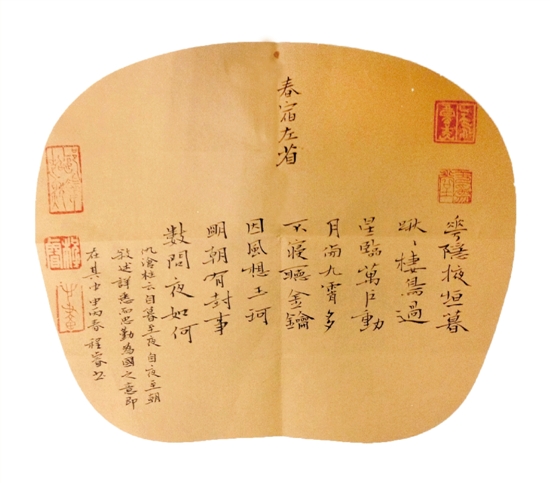 春宿左省
華隱掖垣暮
啾々棲鳥過
星臨萬戶動
月傍九霄多
不寢聽金鑰
因風想玉珂
明朝有封事
數問夜如何
仇滄柱云自暮至夜自夜至朝
敘述詳悉而忠勤為國之意即
在其中 春 程睿書